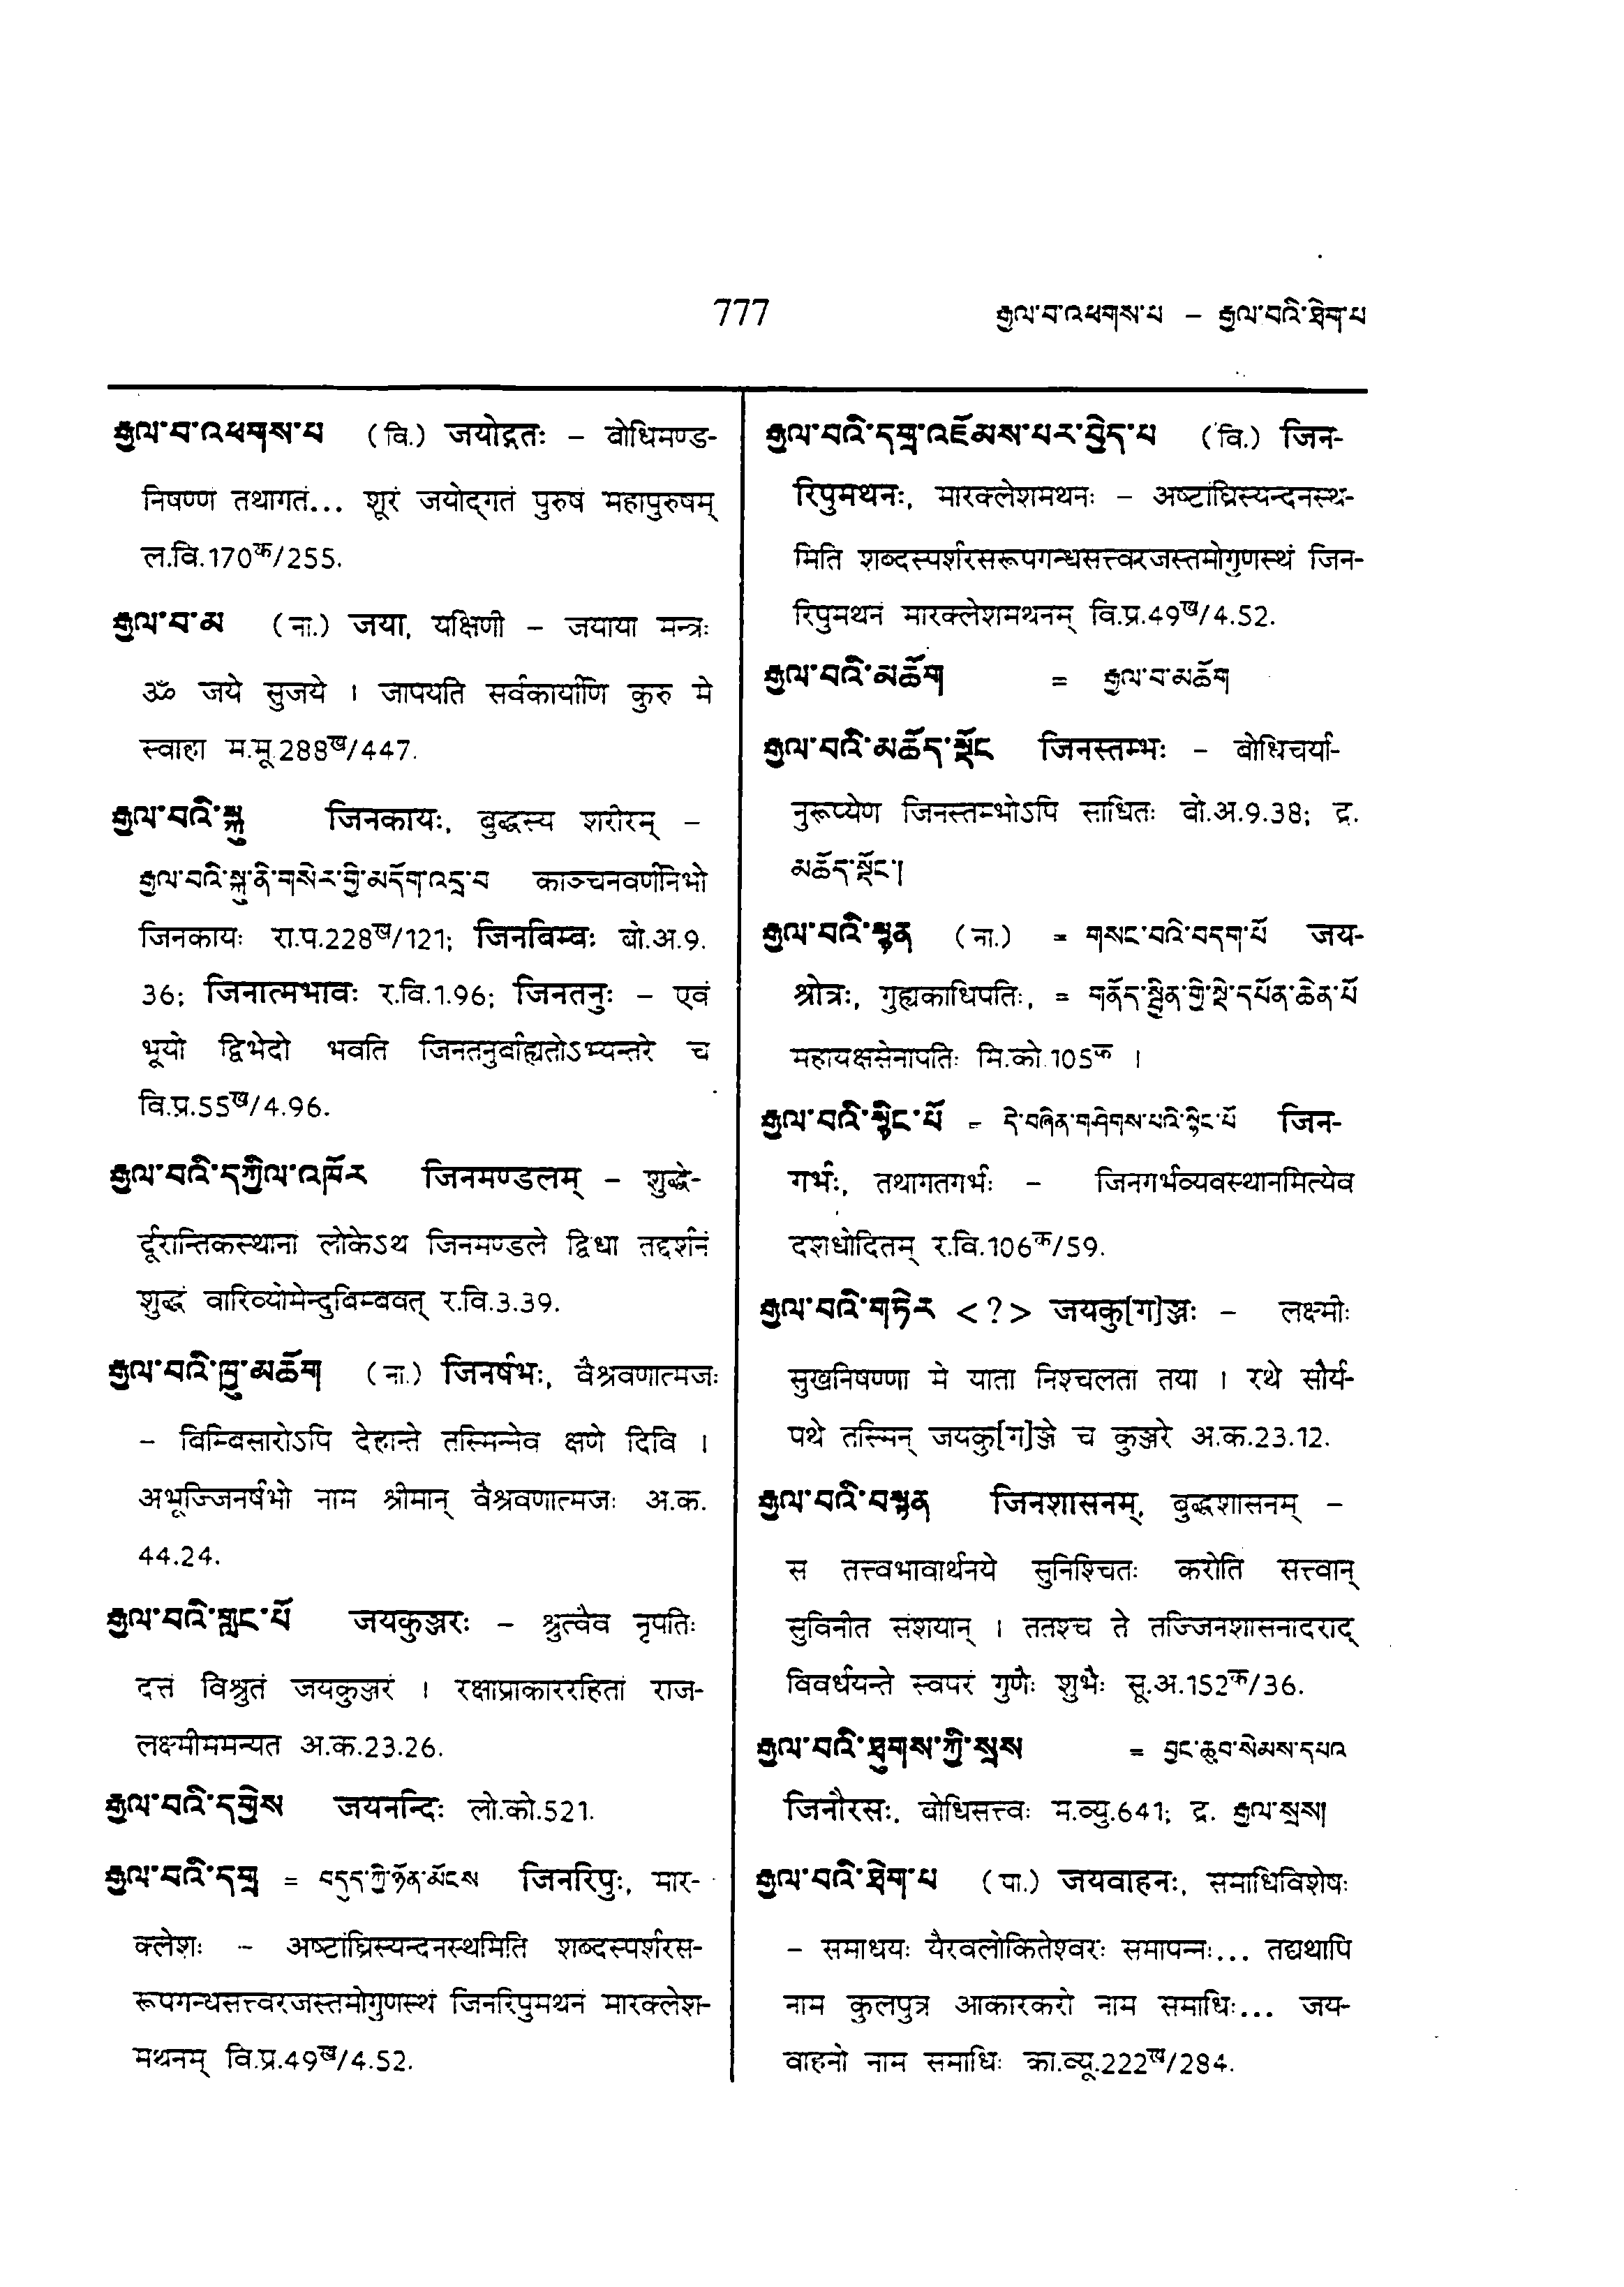 777
རྒྱལ་བ་འཕགས་པ – རྒྱལ་བའི་ཐེག་པ
རྒྱལ་བ་འཕགས་པ (वि.) जयोद्गतः – बोधिमण्ड-
निषण्णं तथागतं... शूरं जयोद्‌गतं पुरुषं महापुरुषम्
ल.वि.170क/255.
རྒྱལ་བ་མ (ना.) जया, यक्षिणी – जयाया मन्त्रः
ॐ जये सुजये । जापयति सर्वकार्याणि कुरु मे
स्वाहा म.मू.288ख/447.
རྒྱལ་བའི་སྐུ जिनकायः, बुद्धस्य शरीरम् –
རྒྱལ་བའི་སྐུ་ནི་གསེར་གྱི་མདོག་འདྲ་བ काञ्चनवर्णनिभो
जिनकायः रा.प.228ख/121; जिनबिम्बः बो.अ.9.
36; जिनात्मभावः र.वि.1.96; जिनतनुः – एवं
भूयो द्विभेदो भवति जिनतनुर्वाह्यतोऽभ्यन्तरे च
वि.प्र.55ख/4.96.
རྒྱལ་བའི་དཀྱིལ་འཁོར जिनमण्डलम् – शुद्धे-
र्दूरान्तिकस्थानां लोकेऽथ जिनमण्डले द्विधा तद्दर्शनं
शुद्धं वारिव्योमेन्दुबिम्बवत् र.वि.3.39.
རྒྱལ་བའི་ཁྱུ་མཆོག (ना.) जिनर्षभः, वैश्रवणात्मजः
– बिम्बिसारोऽपि देहान्ते तस्मिन्नेव क्षणे दिवि ।
अभूज्जिनर्षभो नाम श्रीमान् वैश्रवणात्मजः अ.क.
44.24.
རྒྱལ་བའི་གླང་པོ जयकुञ्जरः – श्रुत्वैव नृपतिः
दत्तं विश्रुतं जयकुञ्जरं । रक्षाप्राकाररहितां राज-
लक्ष्मीममन्यत अ.क.23.26.
རྒྱལ་བའི་དགྱེས जयनन्दिः लो.को.521.
རྒྱལ་བའི་དགྲ = བདུད་ཀྱི་ཉོན་མོངས जिनरिपुः, मार-
क्लेशः – अष्टांघ्रिस्यन्दनस्थमिति शब्दस्पर्शरस-
रूपगन्धसत्त्वरजस्तमोगुणस्थं जिनरिपुमथनं मारक्लेश-
मथनम् वि.प्र.49ख/4.52.
རྒྱལ་བའི་དགྲ་འཇོམས་པར་བྱེད་པ (वि.) जिन-
रिपुमथनः, मारक्लेशमथनः – अष्टांघ्रिस्यन्दनस्थ-
मिति शब्दस्पर्शरसरूपगन्धसत्त्वरजस्तमोगुणस्थं जिन-
रिपुमथनं मारक्लेशमथनम् वि.प्र.49ख/4.52.
རྒྱལ་བའི་མཆོག = རྒྱལ་བ་མཆོག
རྒྱལ་བའི་མཆོད་སྡོང जिनस्तम्भः – बोधिचर्या-
नुरूप्येण जिनस्तम्भोऽपि साधितः बो.अ.9.38; द्र.
མཆོད་སྡོང་།
རྒྱལ་བའི་སྙན (ना.) = གསང་བའི་བདག་པོ जय-
श्रोत्रः, गुह्यकाधिपतिः, = གནོད་སྦྱིན་གྱི་སྡེ་དཔོན་ཆེན་པོ
महायक्षसेनापतिः मि.को.105क ।
རྒྱལ་བའི་སྙིང་པོ = དེ་བཞིན་གཤེགས་པའི་སྙིང་པོ जिन-
गर्भः, तथागतगर्भः – जिनगर्भव्यवस्थानमित्येव
दशधोदितम् र.वि.106क/59.
རྒྱལ་བའི་གཏེར <?> जयकु[ग]ञ्जः – लक्ष्मीः
सुखनिषण्णा मे याता निश्चलता तया । रथे सौर्य-
पथे तस्मिन् जयकु[ग]ञ्जे च कुञ्जरे अ.क.23.12.
རྒྱལ་བའི་བསྟན जिनशासनम्, बुद्धशासनम् –
स तत्त्वभावार्थनये सुनिश्चितः करोति सत्त्वान्
सुविनीत संशयान् । ततश्च ते तज्जिनशासनादराद्
विवर्धयन्ते स्वपरं गुणैः शुभैः सू.अ.152क/36.
རྒྱལ་བའི་ཐུགས་ཀྱི་སྲས = བྱང་ཆུབ་སེམས་དཔའ
जिनौरसः, बोधिसत्त्वः म.व्यु.641; द्र. རྒྱལ་སྲས།
རྒྱལ་བའི་ཐེག་པ (पा.) जयवाहनः, समाधिविशेषः
– समाधयः यैरवलोकितेश्वरः समापन्नः... तद्यथापि
नाम कुलपुत्र आकारकरो नाम समाधिः... जय-
वाहनो नाम समाधिः का.व्यू.222ख/284.